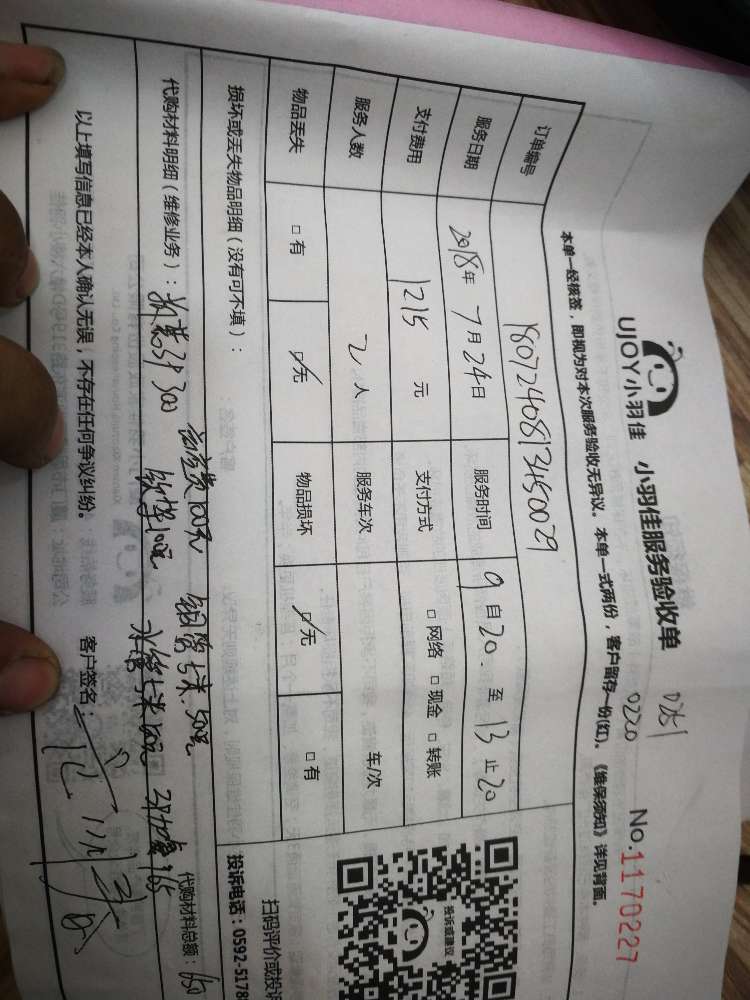 UJOY小羽佳 小羽佳服务验收单 No.1170227
0220
本单一经核签，即视为对本次服务验收无异议。本单一式两份，客户留存一份(红)。《维保须知》详见背面。
订单编号 18072408131450029
服务日期 2018年 7月24日 服务时间 9自20.至13止20
支付费用 1215 元 支付方式 □网络 □现金 □转账
服务人数 2人 服务车次 车/次
物品丢失 □有 ☑无 物品损坏 ☑无 □有
扫码评价或投诉
投诉或建议
损坏或丢失物品明细（没有可不填）：
投诉电话：0592-5178
代购材料明细（维修业务）： 300 高空费100元 铜管5米50元
代购材料总额：650
以上填写信息已经本人确认无误，不存在任何争议纠纷。 客户签名：